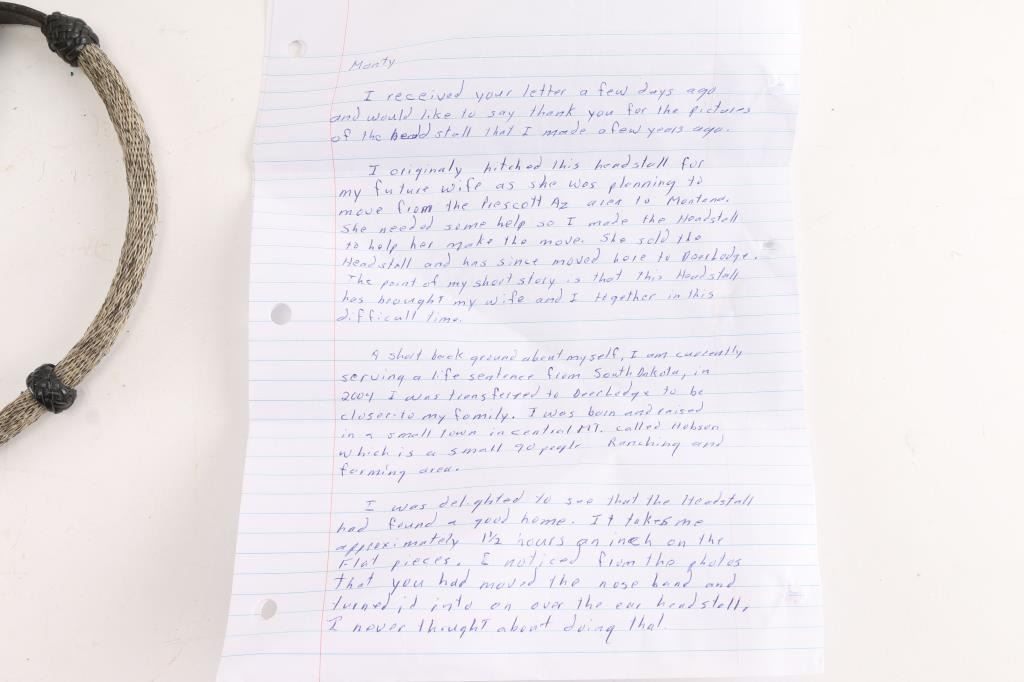 Monty
I received your letter a few days ago
and would like to say thank you for the pictures
of the head stall that I made a few years ago.
I originaly hitched this headstall for
my future wife as she was planning to
move from the Prescott Az area to Montana.
She needed some help so I made the Headstall
to help her make the move. She sold the
Headstall and has since moved here to Deerlodge.
The point of my short story is that this Headstall
has brought my wife and I together in this
difficult time.
A short back ground about myself, I am currently
serving a life sentence from South Dakota, in
2004 I was transferred to Deerlodge to be
closer to my family. I was born and raised
in a small town in central MT. called Hobson
which is a small 90 people Ranching and
farming area.
I was delighted to see that the Headstall
had found a good home. It takes me
approximately 1½ hours an inch on the
Flat pieces. I noticed from the photos
that you had moved the nose band and
turned it into an over the ear headstall,
I never thought about doing that.